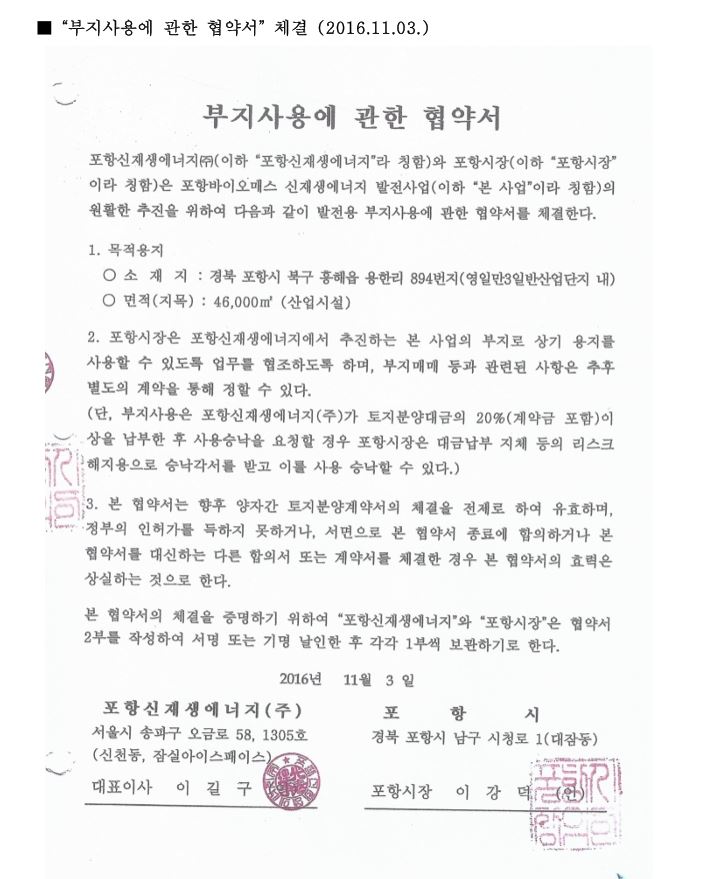 ■ “부지사용에 관한 협약서” 체결 (2016.11.03.)
부지사용에 관한 협약서
포항신재생에너지㈜(이하 “포항신재생에너지”라 칭함)와 포항시장(이하 “포항시장”
이라 칭함)은 포항바이오매스 신재생에너지 발전사업(이하 “본 사업”이라 칭함)의
원활한 추진을 위하여 다음과 같이 발전용 부지사용에 관한 협약서를 체결한다.
1. 목적용지
○ 소 재 지 : 경북 포항시 북구 흥해읍 용한리 894번지(영일만3일반산업단지 내)
○ 면적(지목) : 46,000㎡ (산업시설)
2. 포항시장은 포항신재생에너지에서 추진하는 본 사업의 부지로 상기 용지를
사용할 수 있도록 업무를 협조하도록 하며, 부지매매 등과 관련된 사항은 추후
별도의 계약을 통해 정할 수 있다.
(단, 부지사용은 포항신재생에너지(주)가 토지분양대금의 20%(계약금 포함)이
상을 납부한 후 사용승낙을 요청할 경우 포항시장은 대금납부 지체 등의 리스크
해지용으로 승낙각서를 받고 이를 사용 승낙할 수 있다.)
3. 본 협약서는 향후 양자간 토지분양계약서의 체결을 전제로 하여 유효하며,
정부의 인허가를 득하지 못하거나, 서면으로 본 협약서 종료에 합의하거나 본
협약서를 대신하는 다른 합의서 또는 계약서를 체결한 경우 본 협약서의 효력은
상실하는 것으로 한다.
본 협약서의 체결을 증명하기 위하여 “포항신재생에너지”와 “포항시장”은 협약서
2부를 작성하여 서명 또는 기명 날인한 후 각각 1부씩 보관하기로 한다.
2016년 11월 3 일
포항신재생에너지(주)
서울시 송파구 오금로 58, 1305호
(신천동, 잠실아이스페이스)
대표이사 이 길 구
포 항 시
경북 포항시 남구 시청로 1(대잠동)
포항시장 이 강 덕 (인)